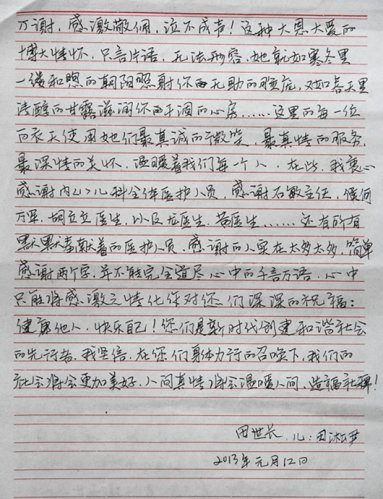 万谢，感激敬佩，泣不成声！这种大恩大爱的
博大情怀，只言片语，无法形容，她就如寒冬里
一缕和煦的朝阳照射你无助的眼庞，又如春天里
清醇的甘露滋润你干涸的心房……这里的每一位
白衣天使用她们最真诚的微笑，最真情的服务，
最深情的关怀，温暖着我们每一个人，在此，我衷心
感谢内(儿)儿科全体医护人员，感谢石敏主任，
医生，以及 医生，黄医生……还有所有
默默奉献着的医护人员，感谢的人实在太多太多，简单
感谢两个字，并不能完全道尽心中的千言万语，心中
只能将感激之情化作对你们深深的祝福：
健康他人，快乐自己！你们是新时代创建和谐社会
的先行者，我坚信，在你们身体力行的召唤下，我们的
社会将会更加美好，人间真情将会温暖人间，造福社稷！
田世长 儿：田淞
2013年元月12日